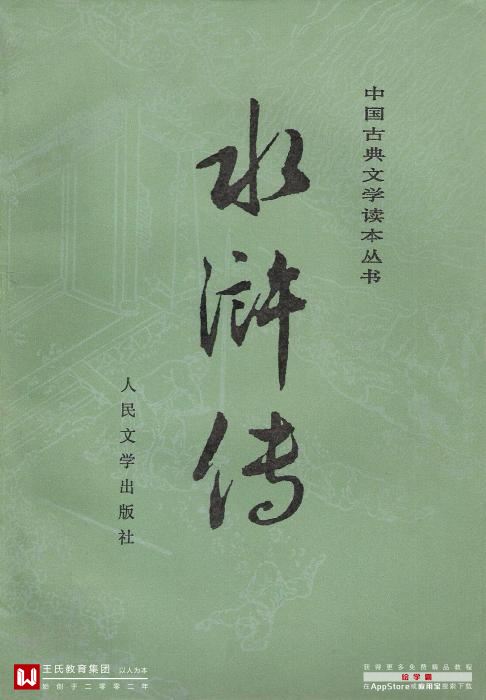 中国古典文学读本丛书
水浒传
人民文学出版社
王氏教育集团 以人为本
始创于二零零二年
获得更多免费精品教程
绘学霸
在AppStore或应用宝搜索下载